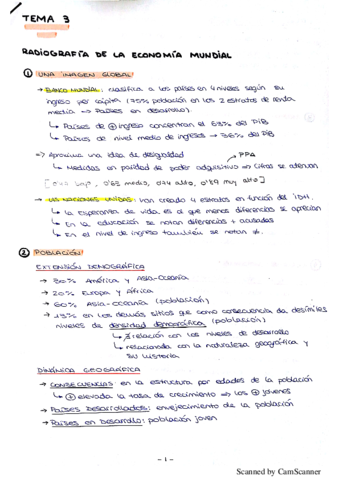 TEMA 3
RADIOGRAFÍA DE LA ECONOMÍA MUNDIAL
① UNA IMAGEN GLOBAL
→ BANCO MUNDIAL: clasifica a los países en 4 niveles según su
ingreso per cápita (75% población en los 2 estratos de renta
media => Países en desarrollo).
↳ Países de ⊕ ingreso concentran el 63% del PIB
↳ Países de nivel medio de ingresos → 36% del PIB
=> Aproxima una idea de desigualdad
PPA
↳ Medidas en paridad de poder adquisitivo => Cifras se atenúan
bajo, 0'63 medio, 0'74 alto, 0'89 muy alto]
→ LAS NACIONES UNIDAS: han creado 4 estratos en función del IDH.
↳ La esperanza de vida es al que menos diferencias se aprecian
↳ En la educación se notan diferencias + acusadas
↳ En el nivel de ingreso también se notan ≠.
② POBLACIÓN
EXTENSIÓN DEMOGRÁFICA
→ 30% América y Asia-Oceanía
→ 20% Europa y África
→ 60% Asia-Oceanía (población)
→ 13% en los demás sitios que como consecuencia da desiguales
niveles de densidad demográfica (población)
↳ relación con los niveles de desarrollo
↳ relacionada con la naturaleza geográfica y
su historia
DINÁMICA GEOGRÁFICA
→ CONSECUENCIAS en la estructura por edades de la población
↳ ⊕ elevada la tasa de crecimiento => los ⊕ jóvenes
→ Países desarrollados: envejecimiento de la población
→ Países en desarrollo: población joven
- 1 -
Scanned by CamScanner